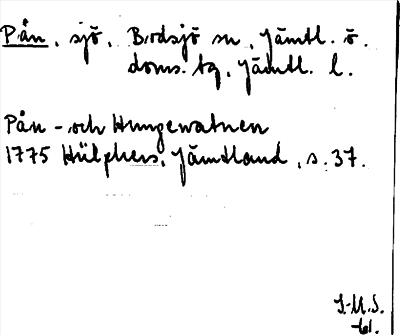 Pån, sjö, Bodsjö sn, Jämtl. ö.
doms. tg, Jämtl. l.
Pån- och Hungewatnen
1775 Hülphers, Jämtland, s. 37.
J-M.S.
-61.